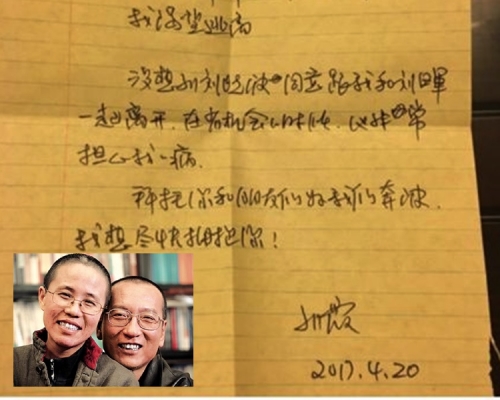 我渴望逃离
没想到刘晓波同意跟我和刘晖
一起离开.在有机会的时候.他非常
担心我的病.
拜托你和朋友们为我们奔波.
我想尽快拥抱你!
刘霞
2017.4.20